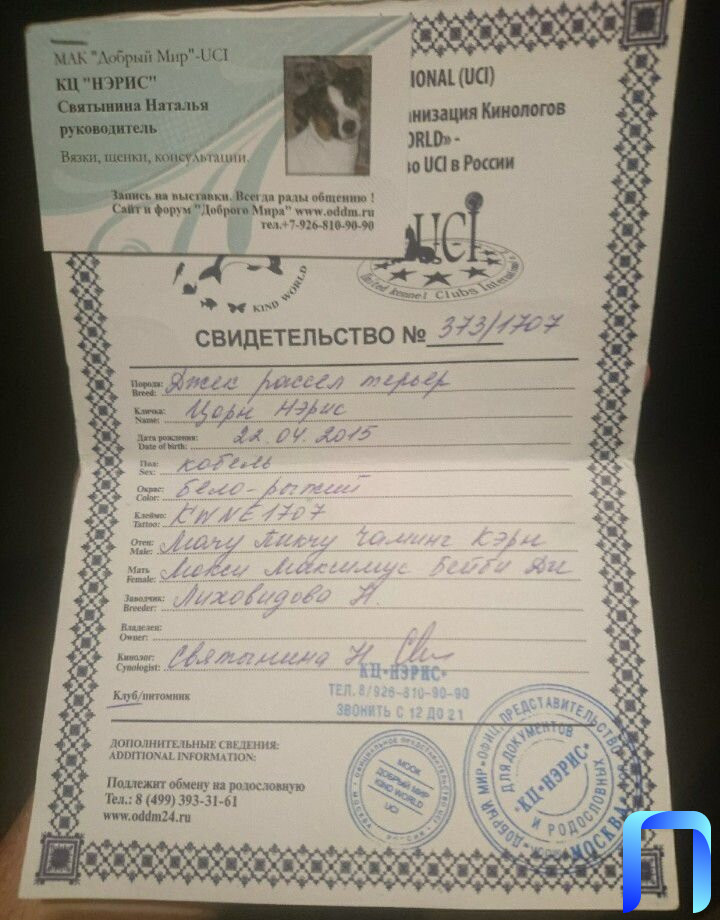 МАК "Добрый Мир"-UCI
КЦ "НЭРИС"
Святынина Наталья
руководитель
Вязки, щенки, консультации.
Запись на выставки. Всегда рады общению !
Сайт и форум "Доброго Мира" www.oddm.ru
тел.+7-926-810-90-90
IONAL (UCI)
низация Кинологов
ORLD» -
во UCI в России
KIND WORLD
UCI
United Kennel Clubs International
СВИДЕТЕЛЬСТВО № 373/1707
Порода: Джек рассел терьер
Breed:
Кличка: Царн Нэрис
Name:
Дата рождения: 22.04.2015
Date of birth:
Пол: кобель
Sex:
Окрас: бело-рыжий
Color:
Клеймо: KWNE1707
Tattoo:
Отец: Мачу Пикчу Чаминг Кэрн
Male:
Мать Мокси Максимус Бейби Ди
Female:
Заводчик: Лиховидова Н.
Breeder:
Владелец:
Owner:
Кинолог: Святынина Н
Cynologist:
КЦ•НЭРИС•
ТЕЛ. 8/926-810-90-90
ЗВОНИТЬ С 12 ДО 21
Клуб/питомник
ДОПОЛНИТЕЛЬНЫЕ СВЕДЕНИЯ:
ADDITIONAL INFORMATION:
Подлежит обмену на родословную
Тел.: 8 (499) 393-31-61
www.oddm24.ru
МООК
ДОБРЫЙ МИР
KIND WORLD
UCI
ДОБРЫЙ МИР•ОФИЦ.ПРЕДСТАВИТЕЛЬСТВО
ДЛЯ ДОКУМЕНТОВ
"КЦ•НЭРИС"
И РОДОСЛОВНЫХ
МОСКВА